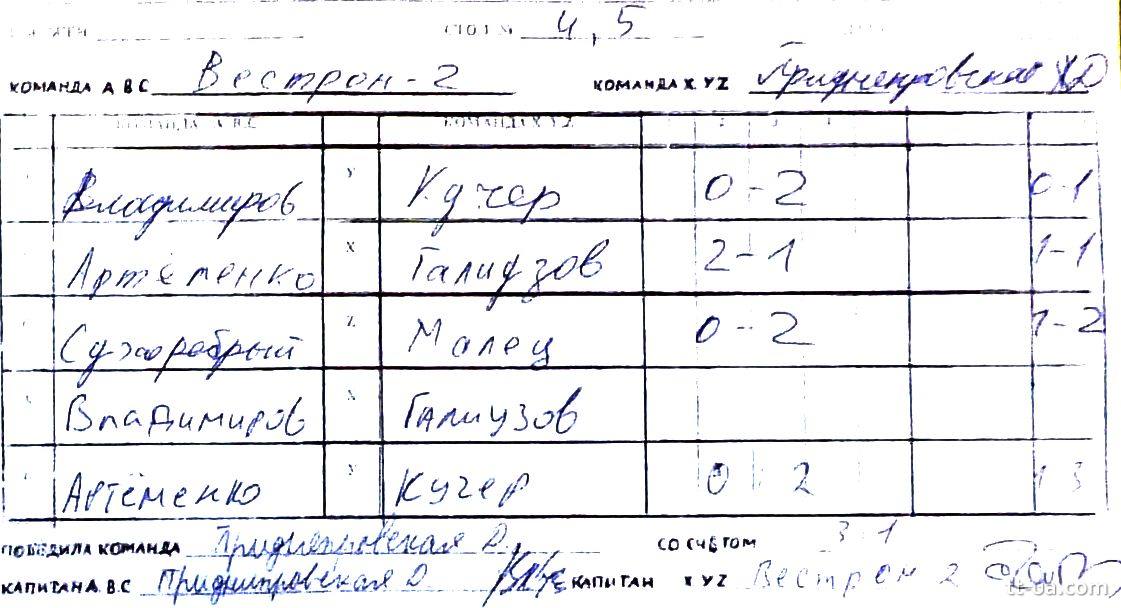 СТОЛ № 4, 5
КОМАНДА А В С Вестрон-2 КОМАНДА X. YZ Приднепровская ХД
КОМАНДА А.В.С КОМАНДА X.Y.Z
Владимиров У Кучер 0-2 0-1
Артёменко X Галидзов 2-1 1-1
Сухоребрый Z Малец 0-2 1-2
Владимиров X Галиузов
Артёменко У Кучер 0 2 1 3
ПОБЕДИЛА КОМАНДА Приднепровская Д. СО СЧЕТОМ 3-1
КАПИТАН А. В.С Приднипровская Д КАПИТАН X YZ Вестрон 2
tt-ua.com